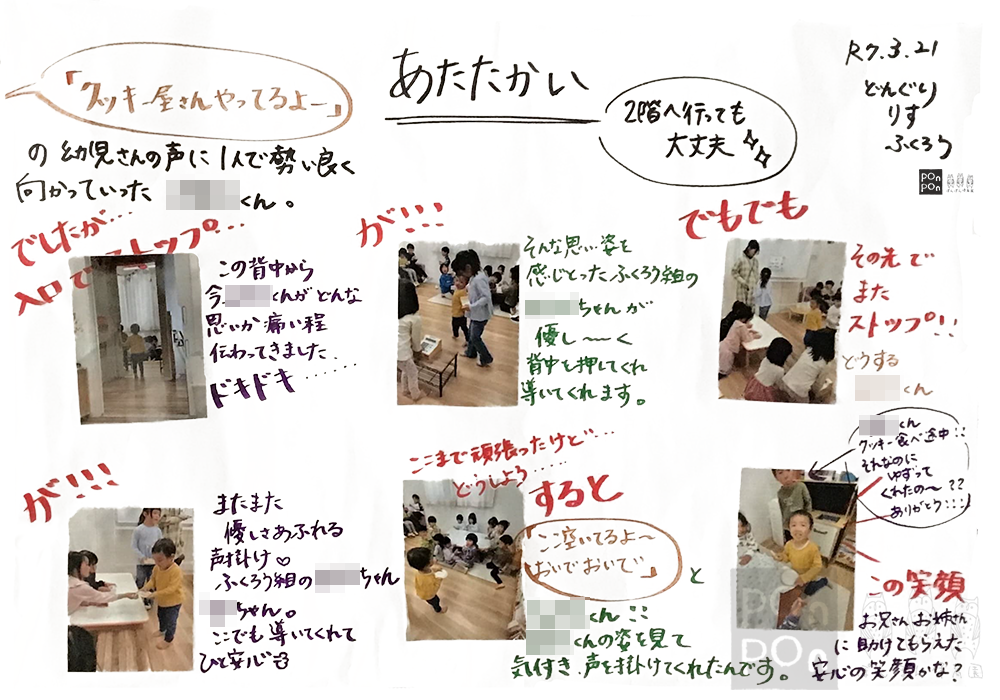 あたたかい
R7.3.21
どんぐり
りす
ふくろう
PonPon
「クッキー屋さんやってるよー」
の幼児さんの声に1人で勢い良く
向かっていった くん。
2階へ行っても
大丈夫
でしたが…
入口でストップ…
この背中から
今、 くんがどんな
思いか痛い程
伝わってきました…
ドキドキ……
が!!!
そんな思い姿を
感じとったふくろう組の
ちゃんが
優し〜く
背中を押してくれ
導いてくれます。
でもでも
その先で
また
ストップ!!
どうする
くん
が!!!
またまた
優しさあふれる
声掛け♡
ふくろう組の ちゃん
ちゃん。
ここでも導いてくれて
ひと安心
ここまで頑張ったけど…
どうしよう……
すると
「ここ空いてるよ〜
おいでおいで」
と
くん
くんの姿を見て
気付き、声を掛けてくれたんです。
くん
クッキー食べ途中
それなのに
ゆずって
くれたの〜??
ありがとう
この笑顔
お兄さんお姉さん
に助けてもらえた
安心の笑顔かな?
PonPon